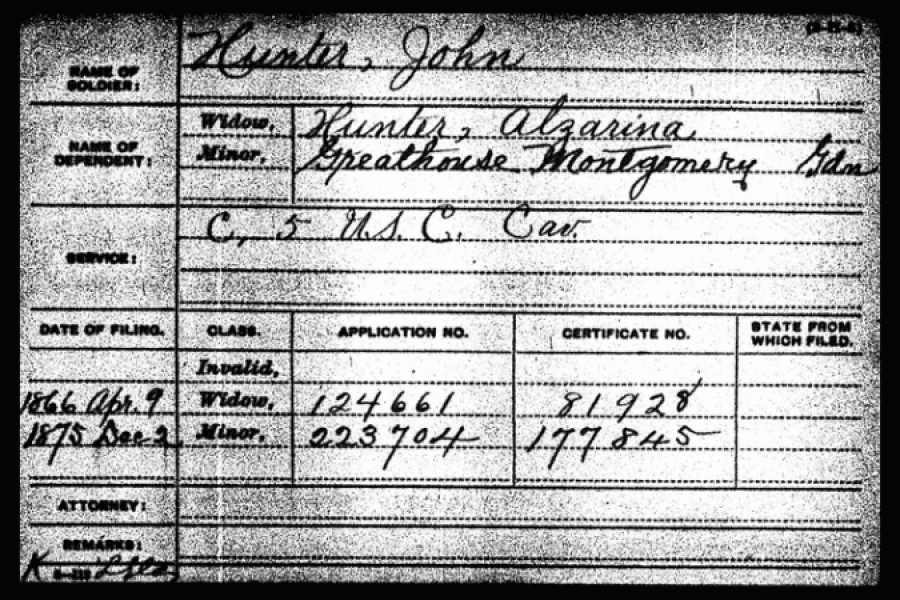 Hunter, John
NAME OF
SOLDIER:
Widow, Hunter, Alzarina
NAME OF
DEPENDENT:
Minor, Greathouse Montgomery Gdn
C, 5 U.S. C. Cav.
SERVICE:
DATE OF FILING. CLASS. APPLICATION NO. CERTIFICATE NO. STATE FROM
WHICH FILED.
Invalid,
1866 Apr. 9 Widow, 124661 81928
1875 Dec 2 Minor, 223704 177845
ATTORNEY:
REMARKS:
K